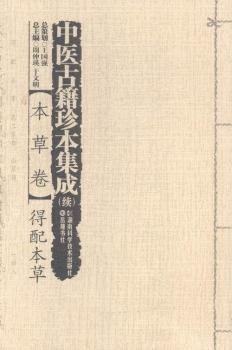 总策划◎王国强
总主编◎周仲瑛 于文明
中医古籍珍本集成
(续)
湖南科学技术出版社
岳麓书社
【本草卷】
得配本草